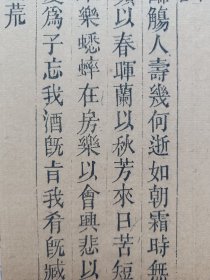 觴人壽幾何逝如朝霜時無
以春暉蘭以秋芳來日苦短
樂蟋蟀在房樂以會興悲以
爲子忘我酒旣旨我肴旣臧
荒